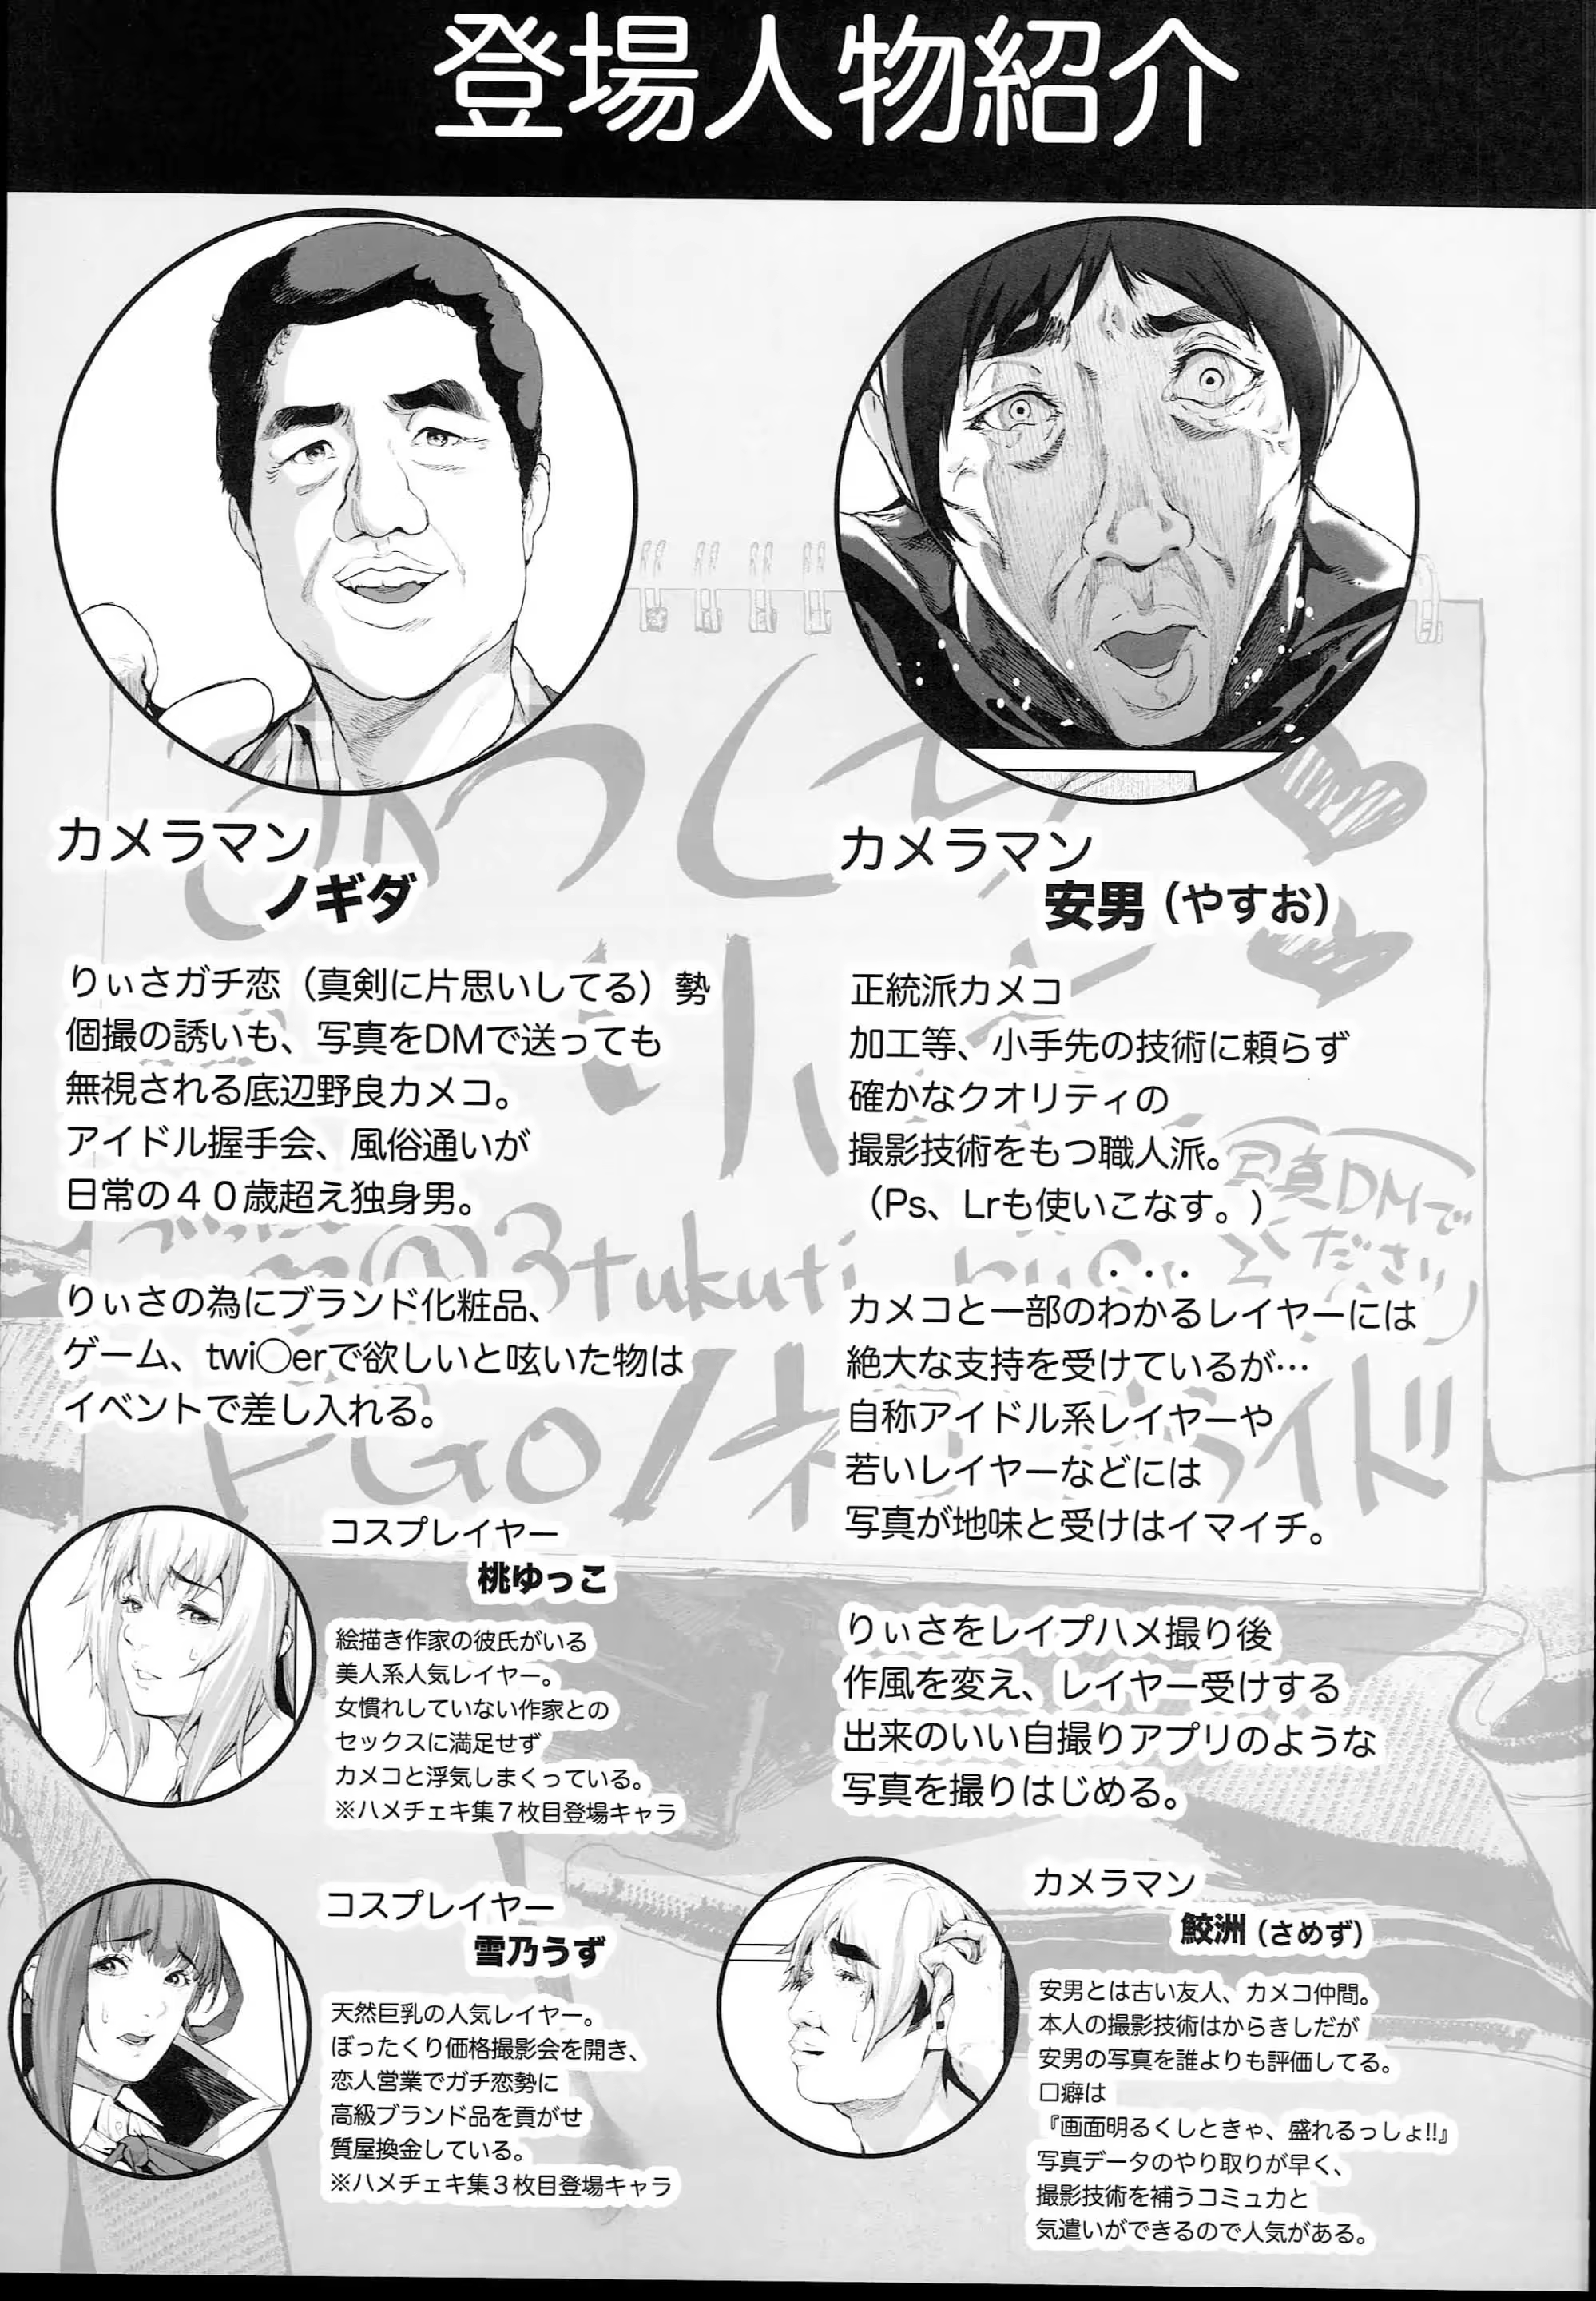 登場人物紹介
カメラマン
ノギダ
りぃさガチ恋（真剣に片思いしてる）勢
個撮の誘いも、写真をDMで送っても
無視される底辺野良カメコ。
アイドル握手会、風俗通いが
日常の４０歳超え独身男。
りぃさの為にブランド化粧品、
ゲーム、twi〇erで欲しいと呟いた物は
イベントで差し入れる。
カメラマン
安男（やすお）
正統派カメコ
加工等、小手先の技術に頼らず
確かなクオリティの
撮影技術をもつ職人派。
（Ps、Lrも使いこなす。）
カメコと一部のわかるレイヤーには
絶大な支持を受けているが…
自称アイドル系レイヤーや
若いレイヤーなどには
写真が地味と受けはイマイチ。
りぃさをレイプハメ撮り後
作風を変え、レイヤー受けする
出来のいい自撮りアプリのような
写真を撮りはじめる。
コスプレイヤー
桃ゆっこ
絵描き作家の彼氏がいる
美人系人気レイヤー。
女慣れしていない作家との
セックスに満足せず
カメコと浮気しまくっている。
※ハメチェキ集７枚目登場キャラ
コスプレイヤー
雪乃うず
天然巨乳の人気レイヤー。
ぼったくり価格撮影会を開き、
恋人営業でガチ恋勢に
高級ブランド品を貢がせ
質屋換金している。
※ハメチェキ集３枚目登場キャラ
カメラマン
鮫洲（さめず）
安男とは古い友人、カメコ仲間。
本人の撮影技術はからきしだが
安男の写真を誰よりも評価してる。
口癖は
『画面明るくしときゃ、盛れるっしょ!!』
写真データのやり取りが早く、
撮影技術を補うコミュ力と
気遣いができるので人気がある。
写真DMで
ください
@3tukuti
FGO/